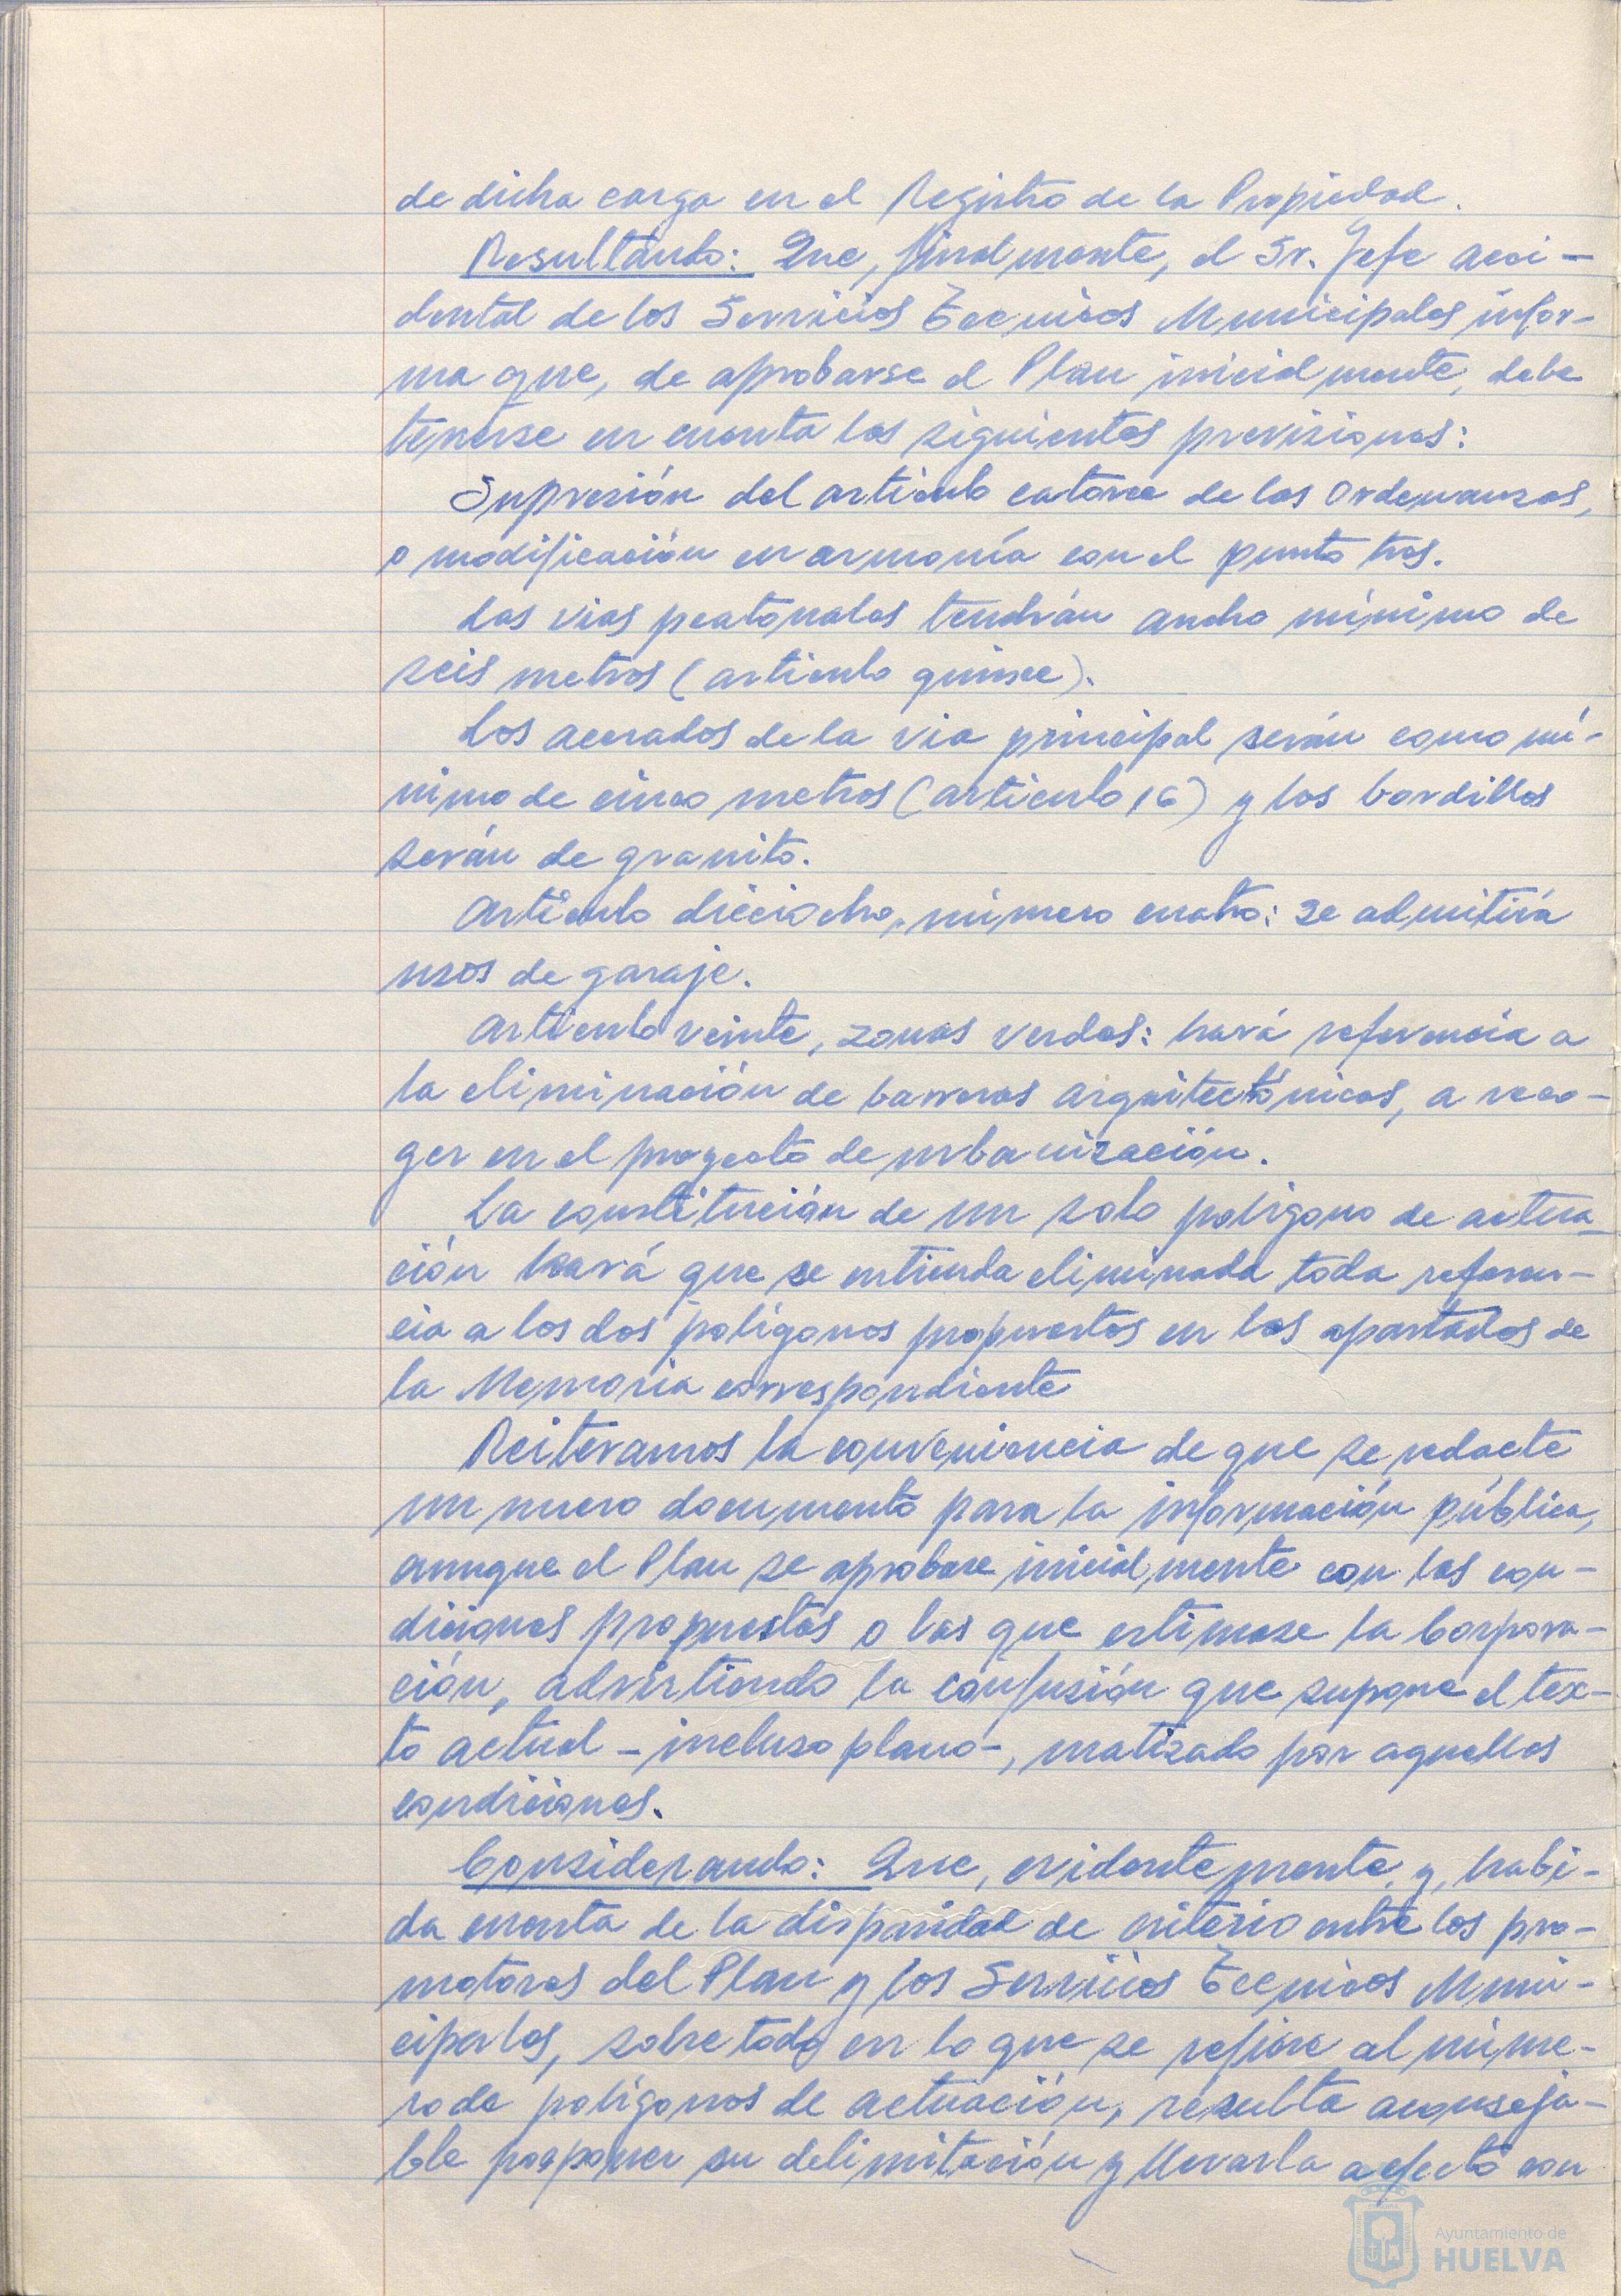 de dicha carga en el Registro de la Propiedad.
Resultando: Que, finalmente, el Sr. Jefe acci-
dental de los Servicios Técnicos Municipales infor-
ma que, de aprobarse el Plan inicialmente, debe
tenerse en cuenta las siguientes previsiones:
Supresión del artículo catorce de las Ordenanzas,
o modificación en armonía con el punto tres.
Las vias peatonales tendrán ancho mínimo de
seis metros (artículo quince).
Los acerados de la via principal serán como mí-
nimo de cinco metros (artículo 16) y los bordillos
serán de granito.
Artículo dieciocho, número cuatro: se admitirá
usos de garaje.
Artículo veinte, zonas verdes: hará referencia a
la eliminación de barreras arquitectónicas, a reco-
ger en el proyecto de urbanización.
La constitución de un solo polígono de actua-
ción hará que se entienda eliminada toda referen-
cia a los dos polígonos propuestos en los apartados de
la Memoria correspondiente
Reiteramos la conveniencia de que se redacte
un nuevo documento para la información pública,
aunque el Plan se aprobase inicialmente con las con-
diciones propuestas o las que estimase la Corpora-
ción, advirtiendo la confusión que supone el tex-
to actual - incluso plano -, matizado por aquellas
condiciones.
Considerando: Que, evidentemente, y, habi-
da cuenta de la disparidad de criterio entre los pro-
motores del Plan y los Servicios Técnicos Muni-
cipales, sobre todo en lo que se refiere al núme-
ro de polígonos de actuación, resulta aconseja-
ble posponer su delimitación y llevarla a efecto con
Ayuntamiento de
HUELVA